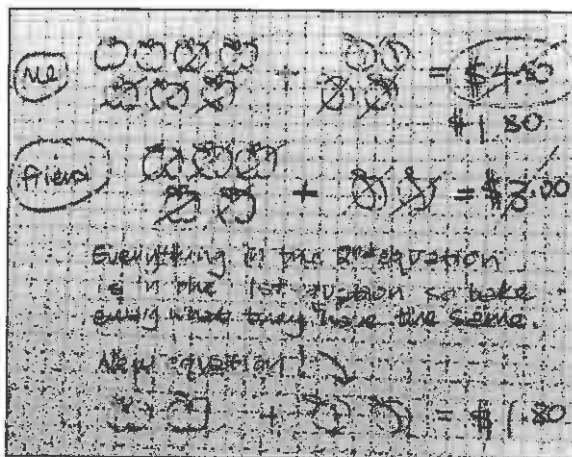 me + = $4.80
$1.80
friend + = $3.00
Everything in the 2nd equation
is in the 1st equation so take
away what they have the same.
New equation
+ = $1.80